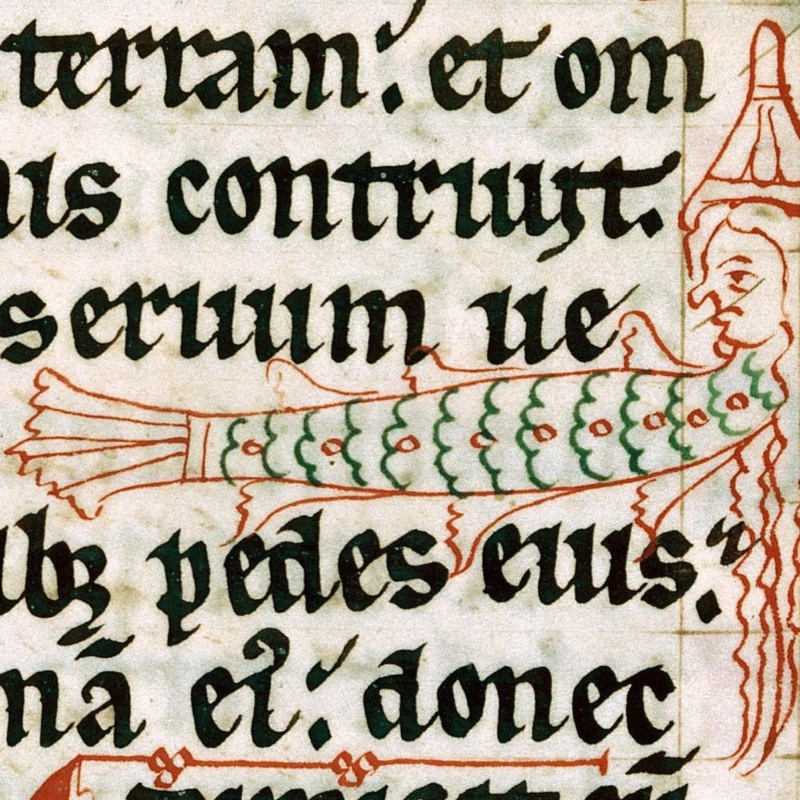 terram: et om
nis contriuit.
seruum ue
ibꝫ pedes eius:
mā eı᷒: donec